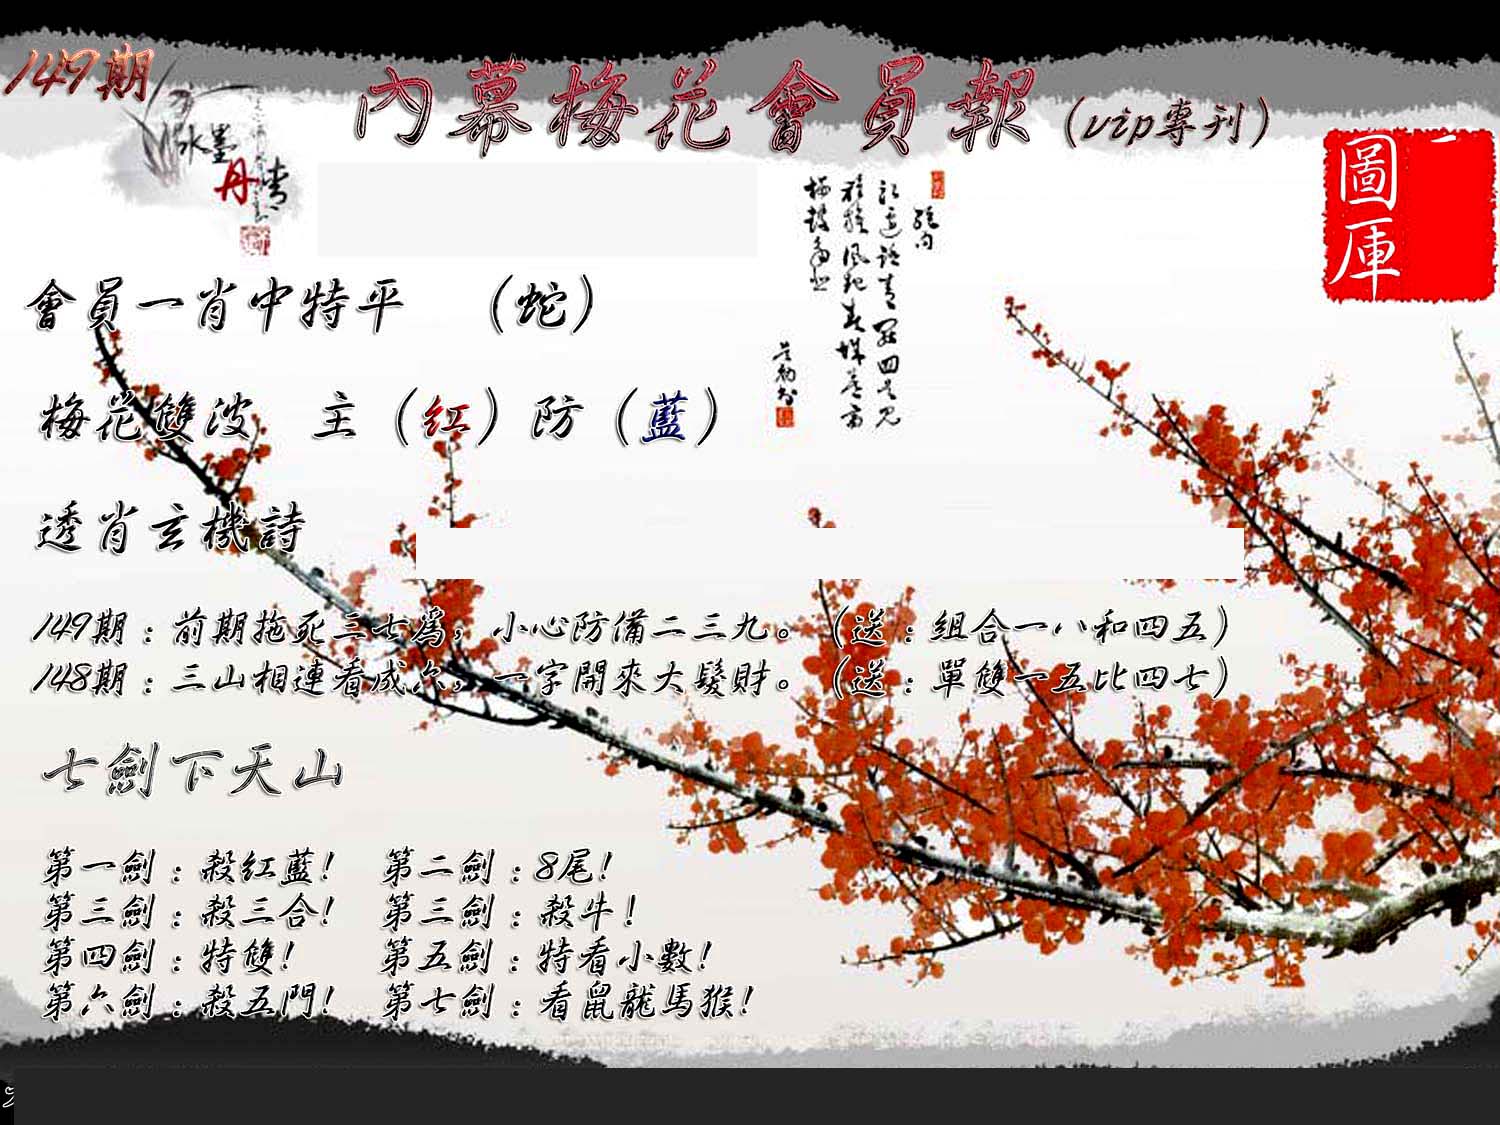 149期
內幕梅花會員報（vip專刊）
水墨
丹青
圖庫
會員一肖中特平　（蛇）
梅花雙波　主（红）防（藍）
透肖玄機詩
149期：前期拖死三七為，小心防備二三九。（送：組合一八和四五）
148期：三山相連看成六，一字開來大髮財。（送：單雙一五比四七）
七劍下天山
第一劍：殺红藍！　第二劍：8尾！
第三劍：殺三合！　第三劍：殺牛！
第四劍：特雙！　第五劍：特看小數！
第六劍：殺五門！　第七劍：看鼠龍馬猴！